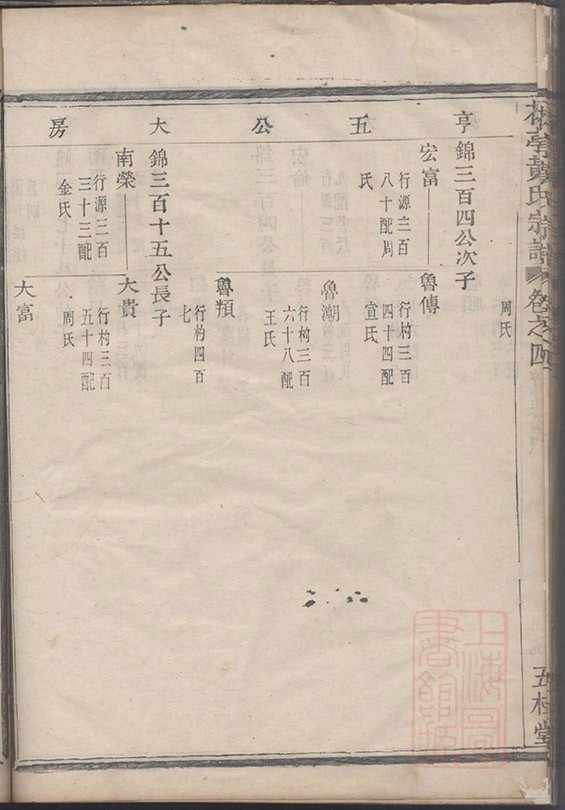 亭黃氏宗譜
卷之四
五桂堂
上海圖
書館藏
亨五公大房
周氏
錦三百四公次子
宏富
行源三百
八十配周
氏
魯傳
行杓三百
四十四配
宣氏
魯潮
行杓三百
六十八配
王氏
魯
行杓四百
七
錦三百十五公長子
南榮
行源三百
三十三配
金氏
大貴
行杓三百
五十四配
周氏
大富